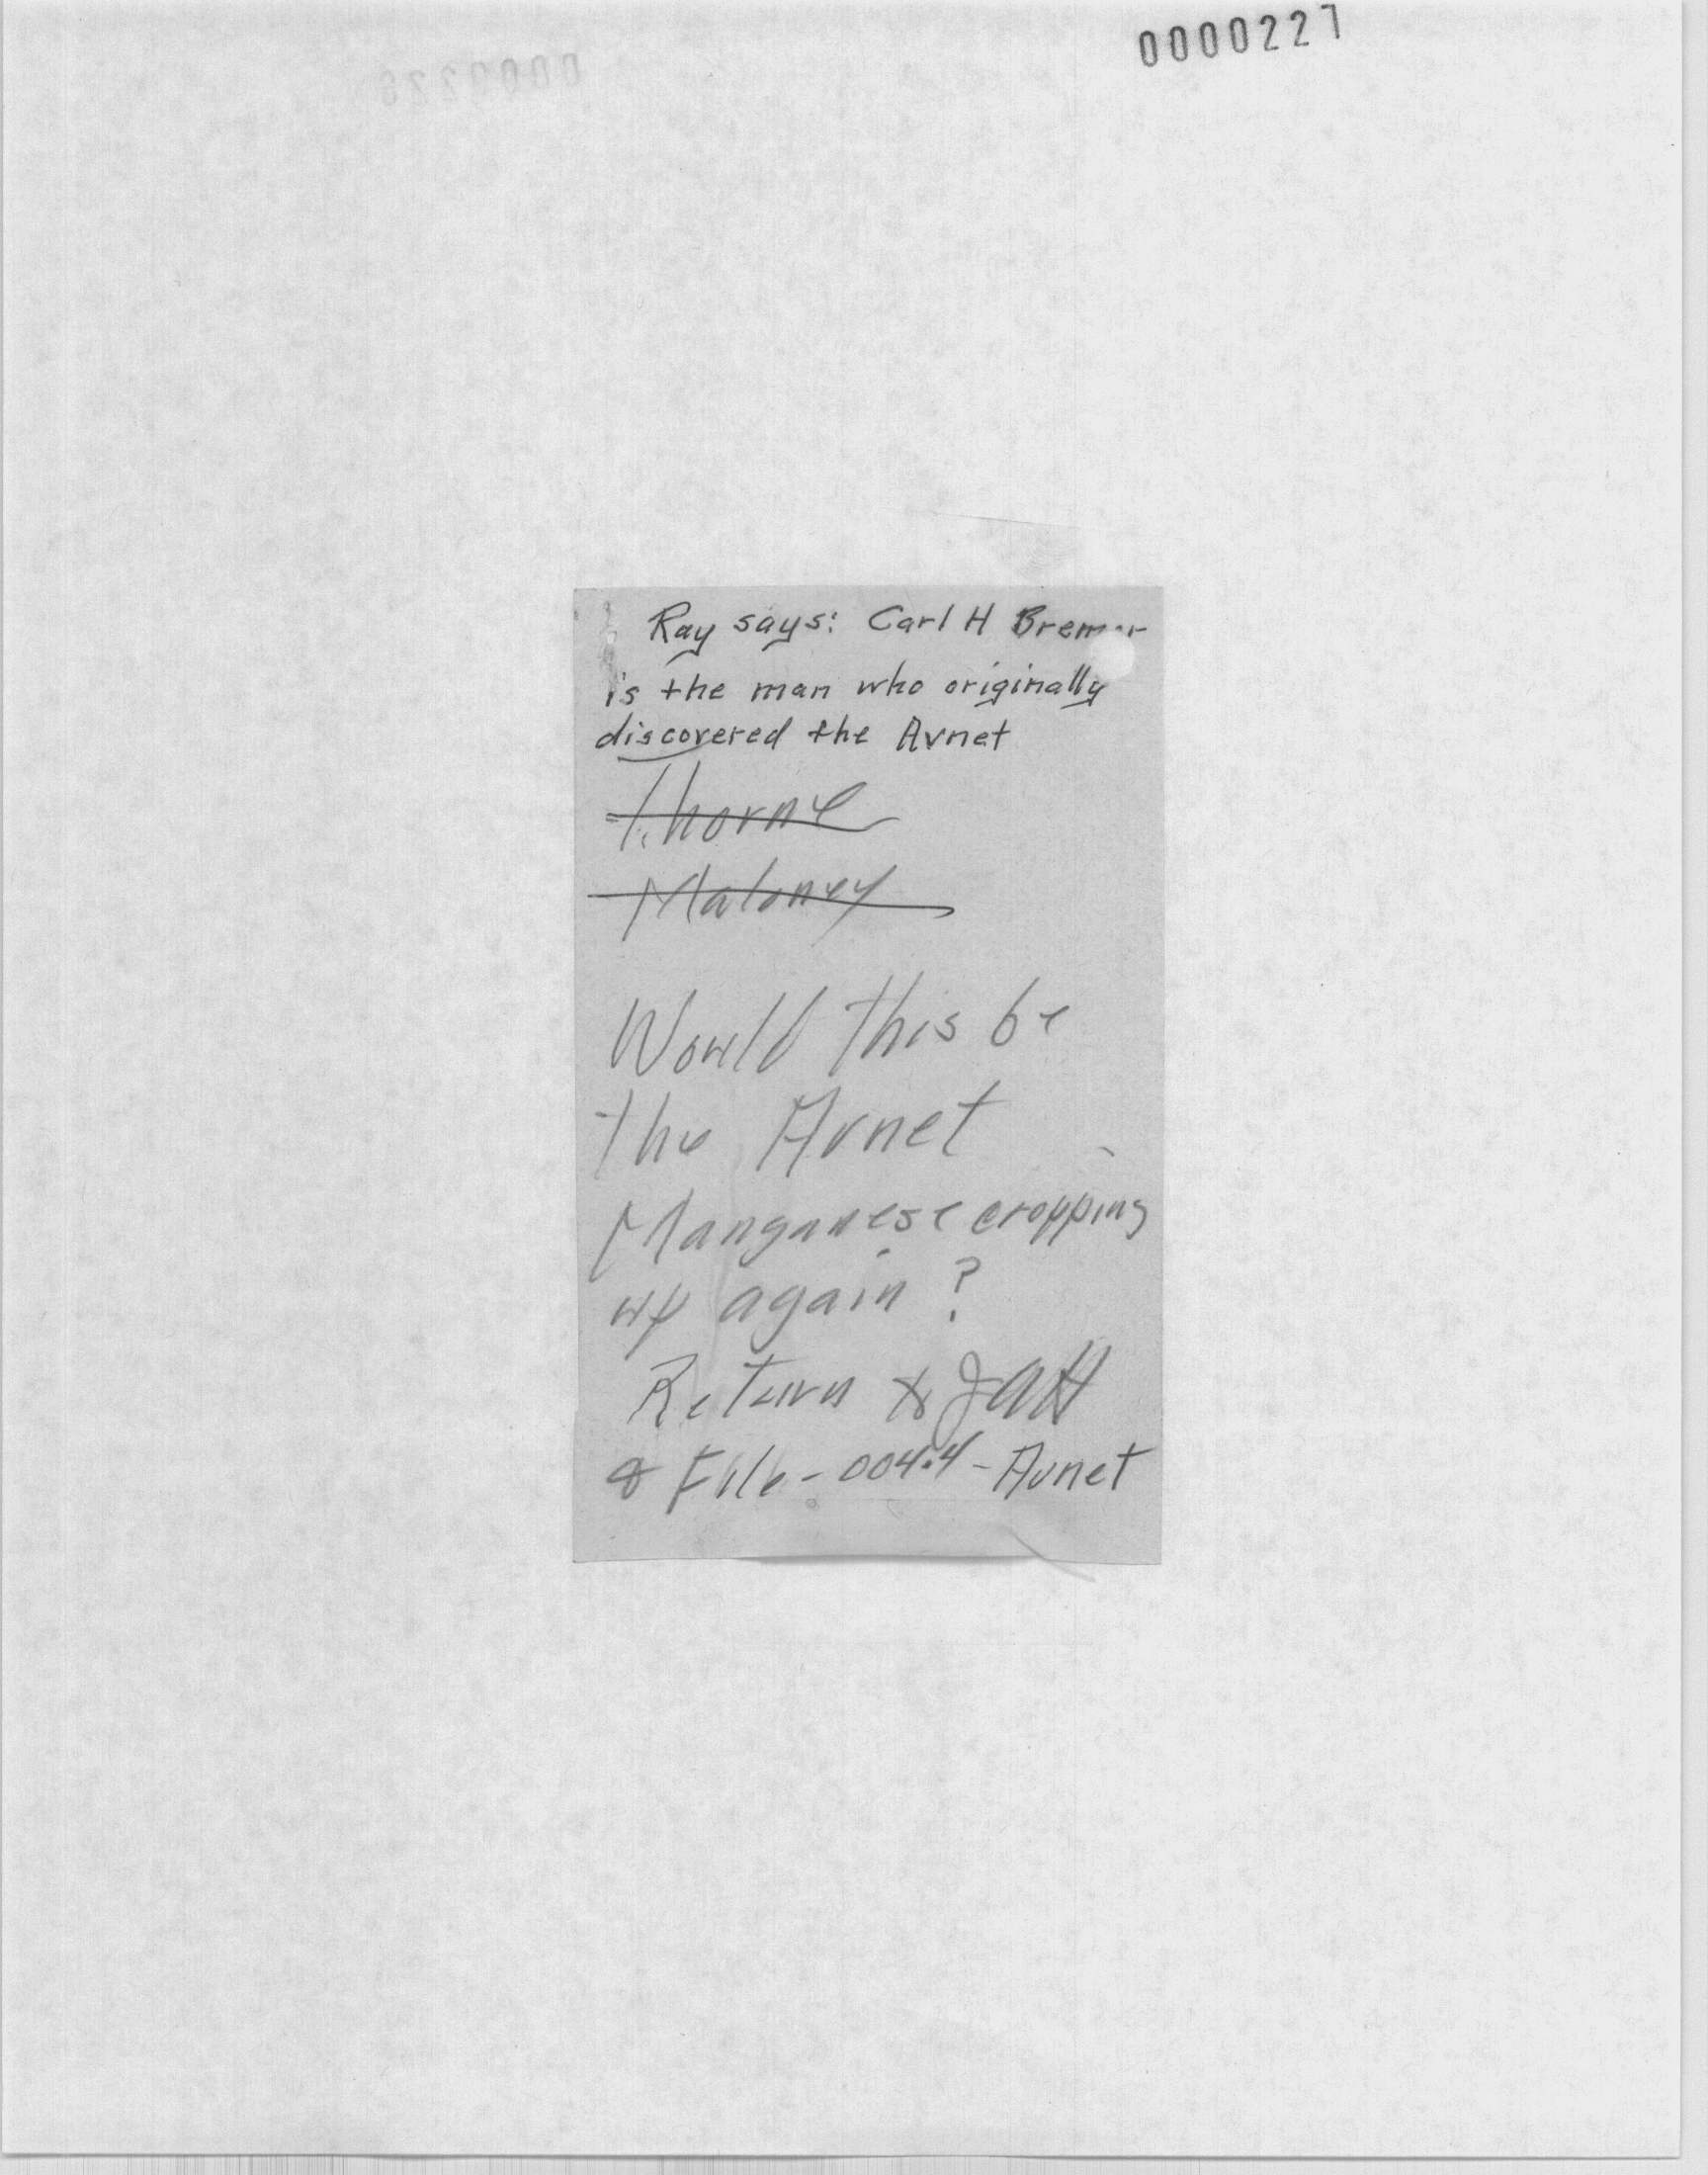 0000227
Ray says: Carl H Bremer
is the man who originally
discovered the Avnet
Thorne
Maloney
Would this be
the Avnet
Manganese cropping
up again?
Return to JAH
& File - 004.4 - Avnet